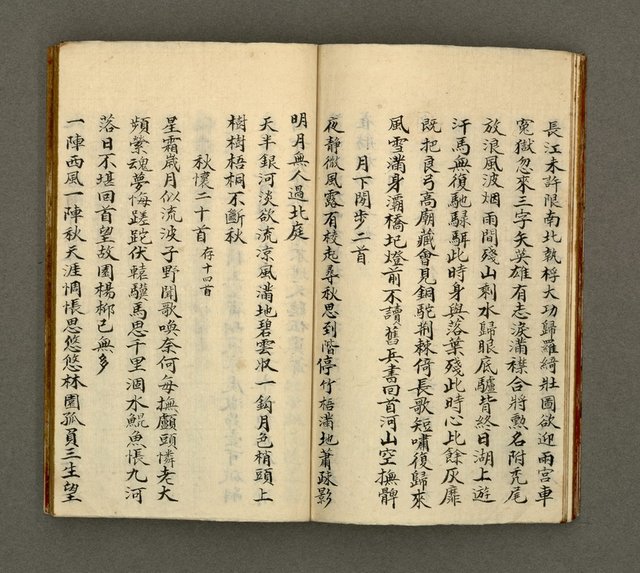 長江未許限南北孰將大功歸羅綺壯圖欲迎兩宮車
冤獄忽來三字矢英雄有志淚滿襟合將勲名附禿尾
放浪風波烟雨間殘山剩水歸眼底驢背終日湖上遊
汗馬無復馳騄駬此時身與落葉殘此時心比餘灰靡
既把良弓高廟藏會見銅駝荆棘倚長歌短嘯復歸來
風雪滿身灞橋圮燈前不讀舊兵書回首河山空撫髀
月下閒步二首
夜靜微風露有校起尋秋思到階停竹梧滿地蕭疎影
明月無人過北庭
天半銀河淡欲流凉風滿地碧雲収一鈎月色梢頭上
樹樹梧桐不斷秋
秋懷二十首 存十四首
星霜歲月似流波子野聞歌喚奈何每撫顱頭憐老大
頻縈魂夢悔蹉跎伏轅驥馬思千里涸水鯤魚悵九河
落日不堪回首望故園楊柳已無多
一陣西風一陣秋天涯惆悵思悠悠林園孤負三生望